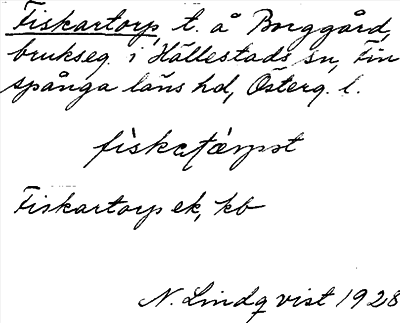 Fiskartorp, t. å Borggård,
brukseg. i Hällestads sn, Fin
spånga läns hd, Österg. l.
Fiskartorp ek, kb
N. Lindqvist 1928